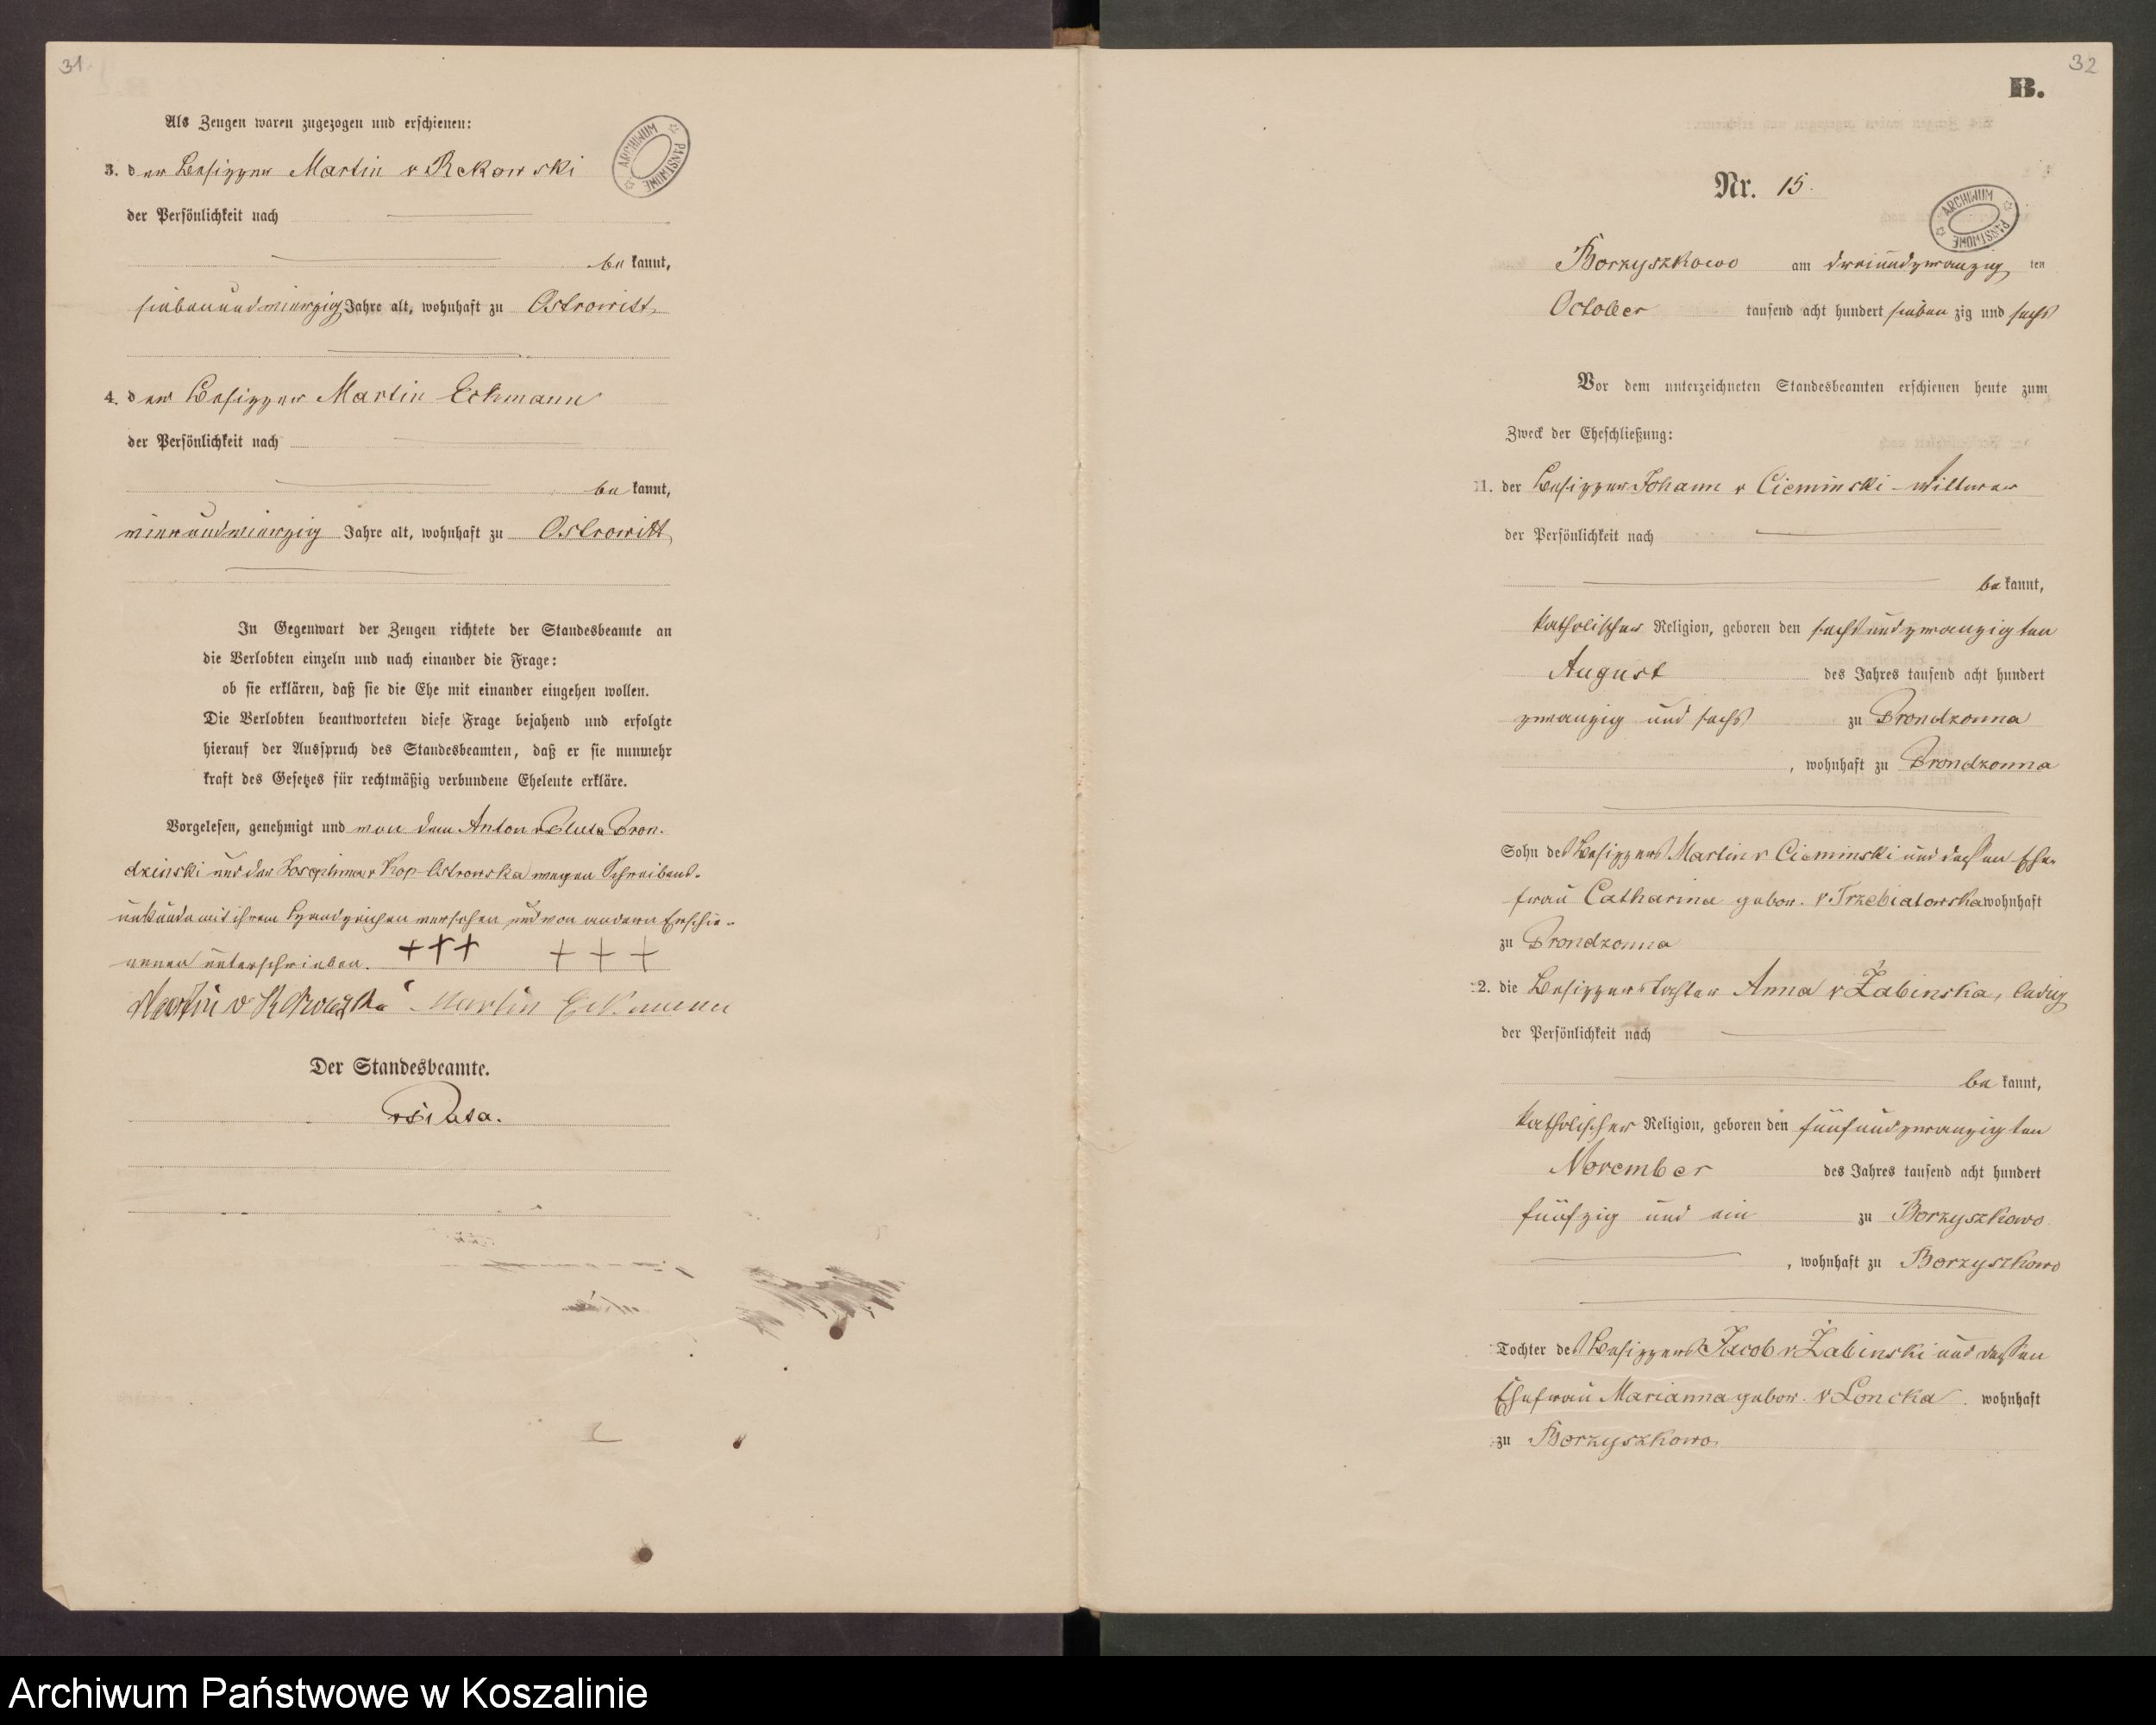 31.
Als Zeugen waren zugezogen und erschienen:
ARCHIWUM PAŃSTWOWE
3. der Besitzer Martin v Rekowski
der Persönlichkeit nach
bekannt,
siebenundvierzig Jahre alt, wohnhaft zu Ostrowitt,
4. der Besitzer Martin Eckmann
der Persönlichkeit nach
bekannt,
vierundvierzig Jahre alt, wohnhaft zu Ostrowitt
In Gegenwart der Zeugen richtete der Standesbeamte an
die Verlobten einzeln und nach einander die Frage:
ob sie erklären, daß sie die Ehe mit einander eingehen wollen.
Die Verlobten beantworteten diese Frage bejahend und erfolgte
hierauf der Ausspruch des Standesbeamten, daß er sie nunmehr
kraft des Gesetzes für rechtmäßig verbundene Eheleute erkläre.
Vorgelesen, genehmigt und von dem Anton v Pluta Pron-
dzinski und der Josephina v Kop-Ostrowska wegen Schreibens-
unkunde mit ihrem Handzeichen versehen und von andern Erschie-
nenen unterschrieben. +++ +++
Martin v Martin Eckmann
Der Standesbeamte.
32
B.
Nr. 15.
ARCHIWUM PAŃSTWOWE
Borzyszkowo am dreiundzwanzig ten
October tausend acht hundert siebenzig und sechs
Vor dem unterzeichneten Standesbeamten erschienen heute zum
Zweck der Eheschließung:
1. der Besitzer Johann v Cieminski - Wittwer
der Persönlichkeit nach
bekannt,
katholischer Religion, geboren den sechsundzwanzigten
August des Jahres tausend acht hundert
zwanzig und sechs zu Prondzonna
, wohnhaft zu Prondzonna
Sohn des Besitzers Martin v Cieminski und dessen Ehe-
frau Catharina gebor. v Trzebiatowska wohnhaft
zu Prondzonna
2. die Besitzerstochter Anna v Żabinska, ledig
der Persönlichkeit nach
bekannt,
katholischer Religion, geboren den fünfundzwanzigten
November des Jahres tausend acht hundert
fünfzig und ein zu Borzyszkowo
, wohnhaft zu Borzyszkowo
Tochter des Besitzers Jacob v Żabinski und dessen
Ehefrau Marianna gebor. v Loncka wohnhaft
zu Borzyszkowo
Archiwum Państwowe w Koszalinie